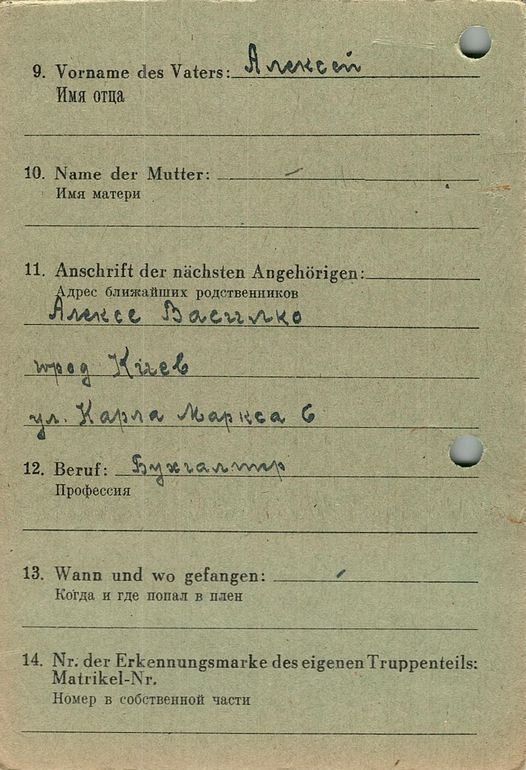 9. Vorname des Vaters: Алексей
Имя отца
10. Name der Mutter: –
Имя матери
11. Anschrift der nächsten Angehörigen:
Адрес ближайших родственников
Алексе Василко
город Кіев
ул. Карла Маркса 6
12. Beruf: Бухгалтир
Профессия
13. Wann und wo gefangen:
Когда и где попал в плен
14. Nr. der Erkennungsmarke des eigenen Truppenteils:
Matrikel-Nr.
Номер в собственной части